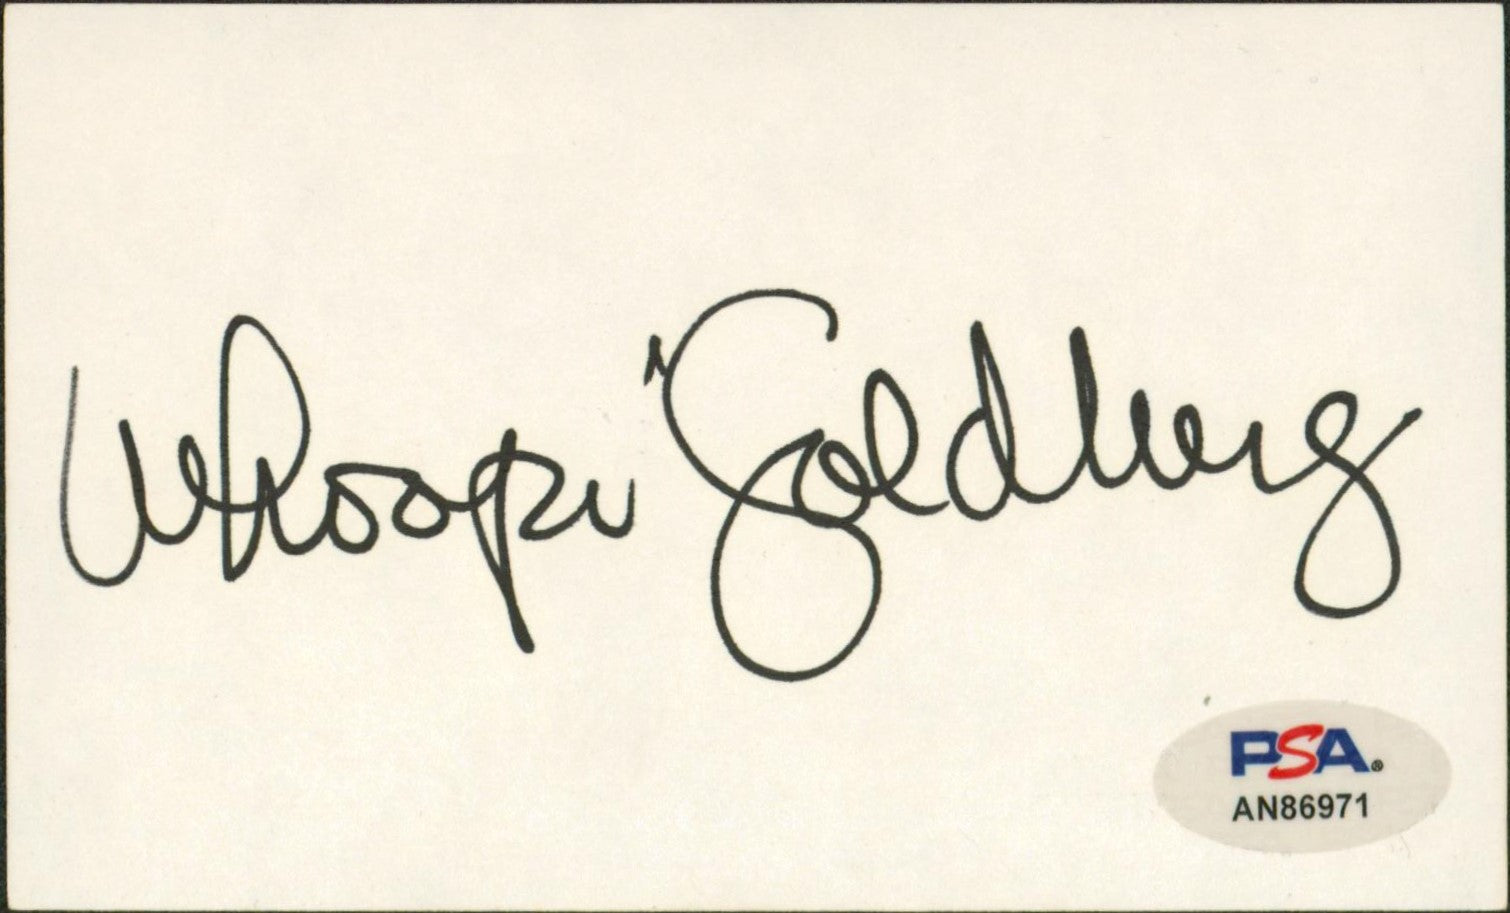 Whoopi Goldberg
PSA®
AN86971